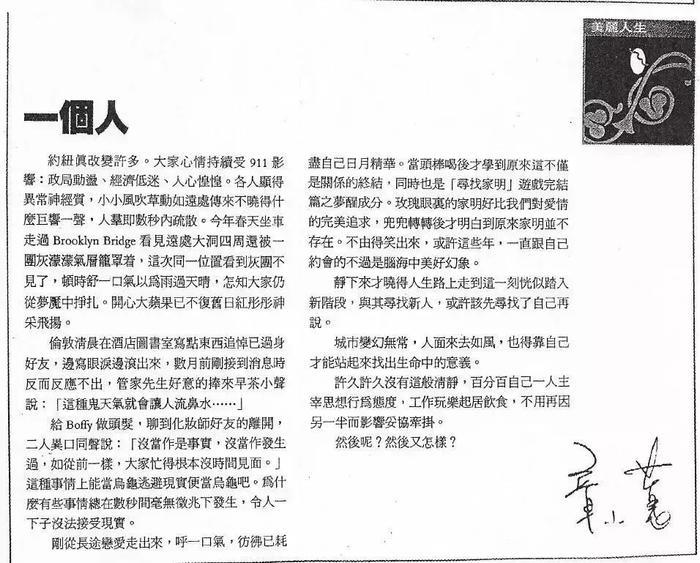 美麗人生
一個人
約紐眞改變許多。大家心情持續受 911 影
響：政局動盪、經濟低迷、人心惶惶。各人顯得
異常神經質，小小風吹草動如遠處傳來不曉得什
麼巨響一聲，人羣即數秒內疏散。今年春天坐車
走過 Brooklyn Bridge 看見遠處大洞四周還被一
團灰濛濛氣層籠罩着，這次同一位置看到灰團不
見了，頓時舒一口氣以爲雨過天晴，怎知大家仍
從夢魘中掙扎。開心大蘋果已不復舊日紅彤彤神
采飛揚。
倫敦淸晨在酒店圖書室寫點東西追悼已過身
好友，邊寫眼淚邊滾出來，數月前剛接到消息時
反而反應不出，管家先生好意的捧來早茶小聲
說：「這種鬼天氣就會讓人流鼻水⋯⋯」
給 Boffy 做頭髮，聊到化妝師好友的離開，
二人異口同聲說：「沒當作是事實，沒當作發生
過，如從前一樣，大家忙得根本沒時間見面。」
這種事情上能當烏龜逃避現實便當烏龜吧。爲什
麼有些事情總在數秒間毫無徵兆下發生，令人一
下子沒法接受現實。
剛從長途戀愛走出來，呼一口氣，彷彿已耗
盡自己日月精華。當頭棒喝後才學到原來這不僅
是關係的終結，同時也是「尋找家明」遊戲完結
篇之夢醒成分。玫瑰眼裏的家明好比我們對愛情
的完美追求，兜兜轉轉後才明白到原來家明並不
存在。不由得笑出來，或許這些年，一直跟自己
約會的不過是腦海中美好幻象。
靜下來才曉得人生路上走到這一刻恍似踏入
新階段，與其尋找新人，或許該先尋找了自己再
說。
城市變幻無常，人面來去如風，也得靠自己
才能站起來找出生命中的意義。
許久許久沒有這般淸靜，百分百自己一人主
宰思想行爲態度，工作玩樂起居飲食，不用再因
另一半而影響妥協牽掛。
然後呢？然後又怎樣？
章小蕙